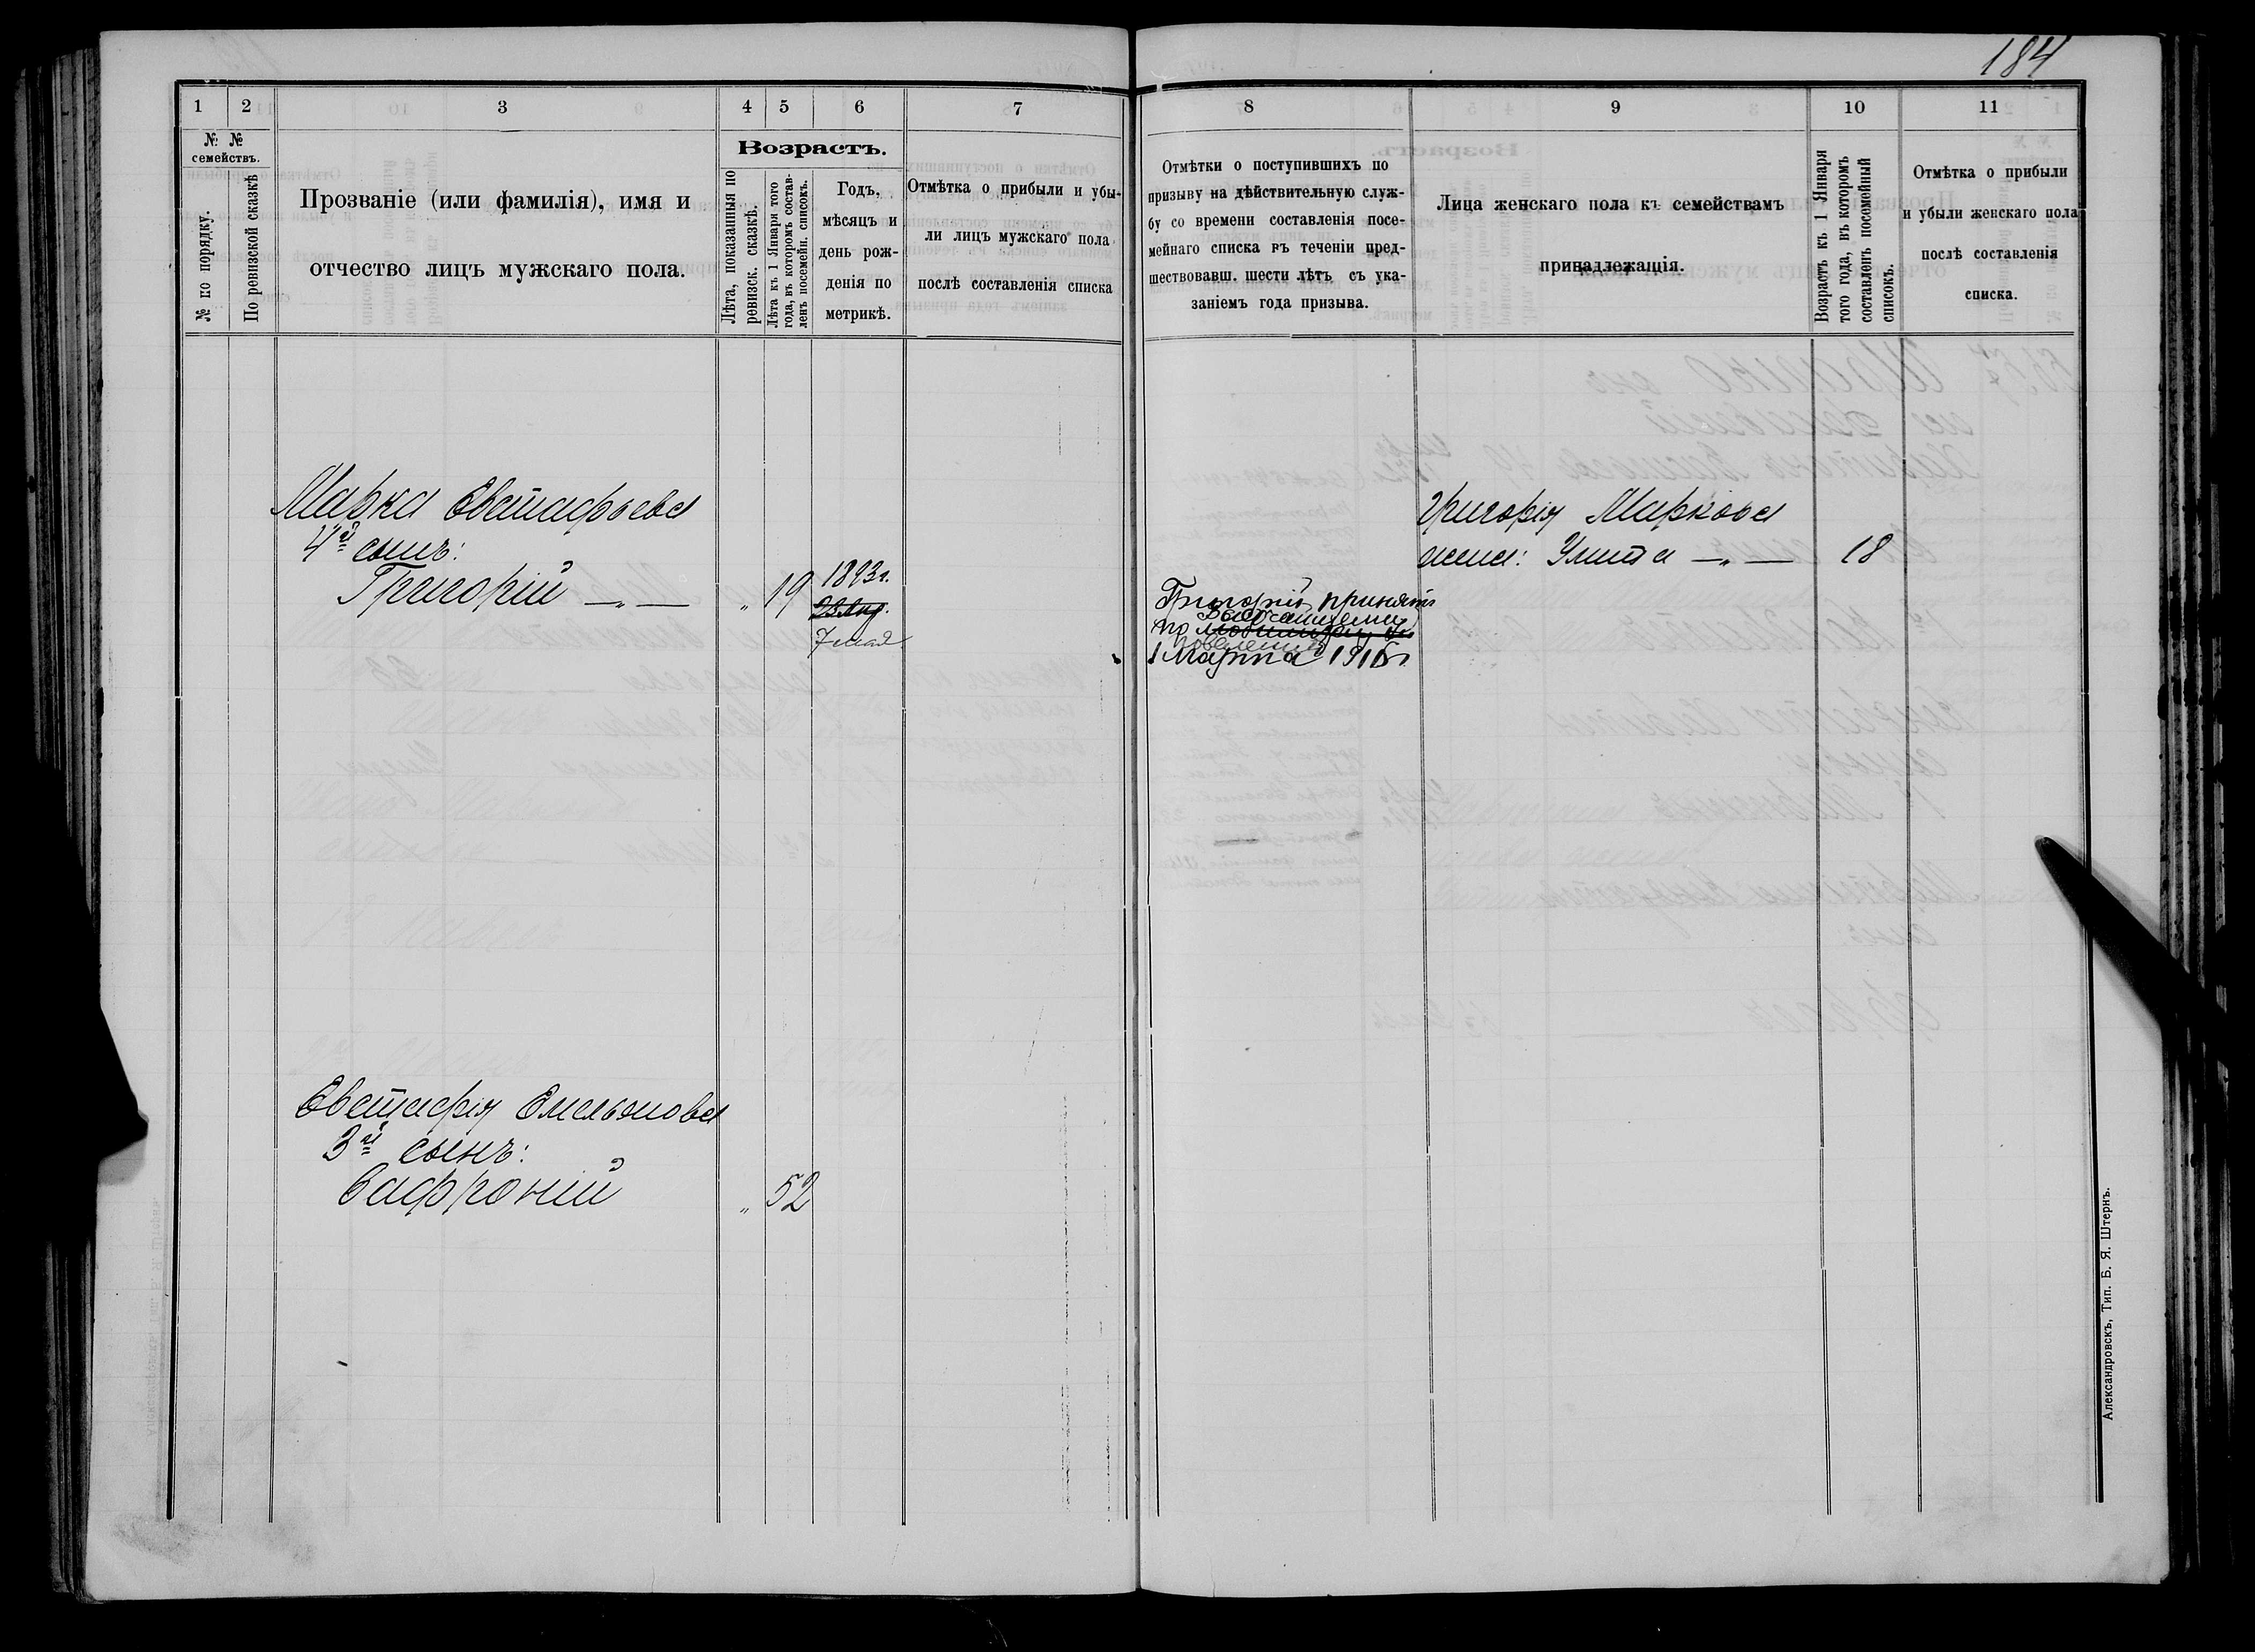 184
1 2 3 4 5 6 7
№ № семействъ.
№ по порядку.
По ревизской сказкѣ
Прозваніе (или фамилія), имя и
отчество лицъ мужскаго пола.
Возрастъ.
Лѣта, показанныя по
ревизск. сказкѣ.
Лѣта къ 1 Января того
года, въ которомъ состав-
ленъ посемейн. списокъ.
Годъ,
мѣсяцъ и
день рож-
денія по
метрикѣ.
Отмѣтка о прибыли и убы-
ли лицъ мужскаго пола
послѣ составленія списка
Марка Евстафьева
4й сынъ:
Григорій — „ — „ 19 1893г.
7 мая
Евстафія Емельянова
3й сынъ:
Сафроній „ 52
8 9 10 11
Отмѣтки о поступившихъ по
призыву на дѣйствительную служ-
бу со времени составленія посе-
мейнаго списка въ теченіи пред-
шествовавш. шести лѣтъ съ ука-
заніемъ года призыва.
Лица женскаго пола къ семействамъ
принадлежащія.
Возрастъ къ 1 Января
того года, въ которомъ
составленъ посемейный
списокъ.
Отмѣтка о прибыли
и убыли женскаго пола
послѣ составленія
списка.
Григорія Маркова
жена: Улита — „ — 18
Григорій принятъ
по Высочайшему
повелѣнію
1 Марта 1916г.
Александровскъ, Тип. Б. Я. Штернъ.